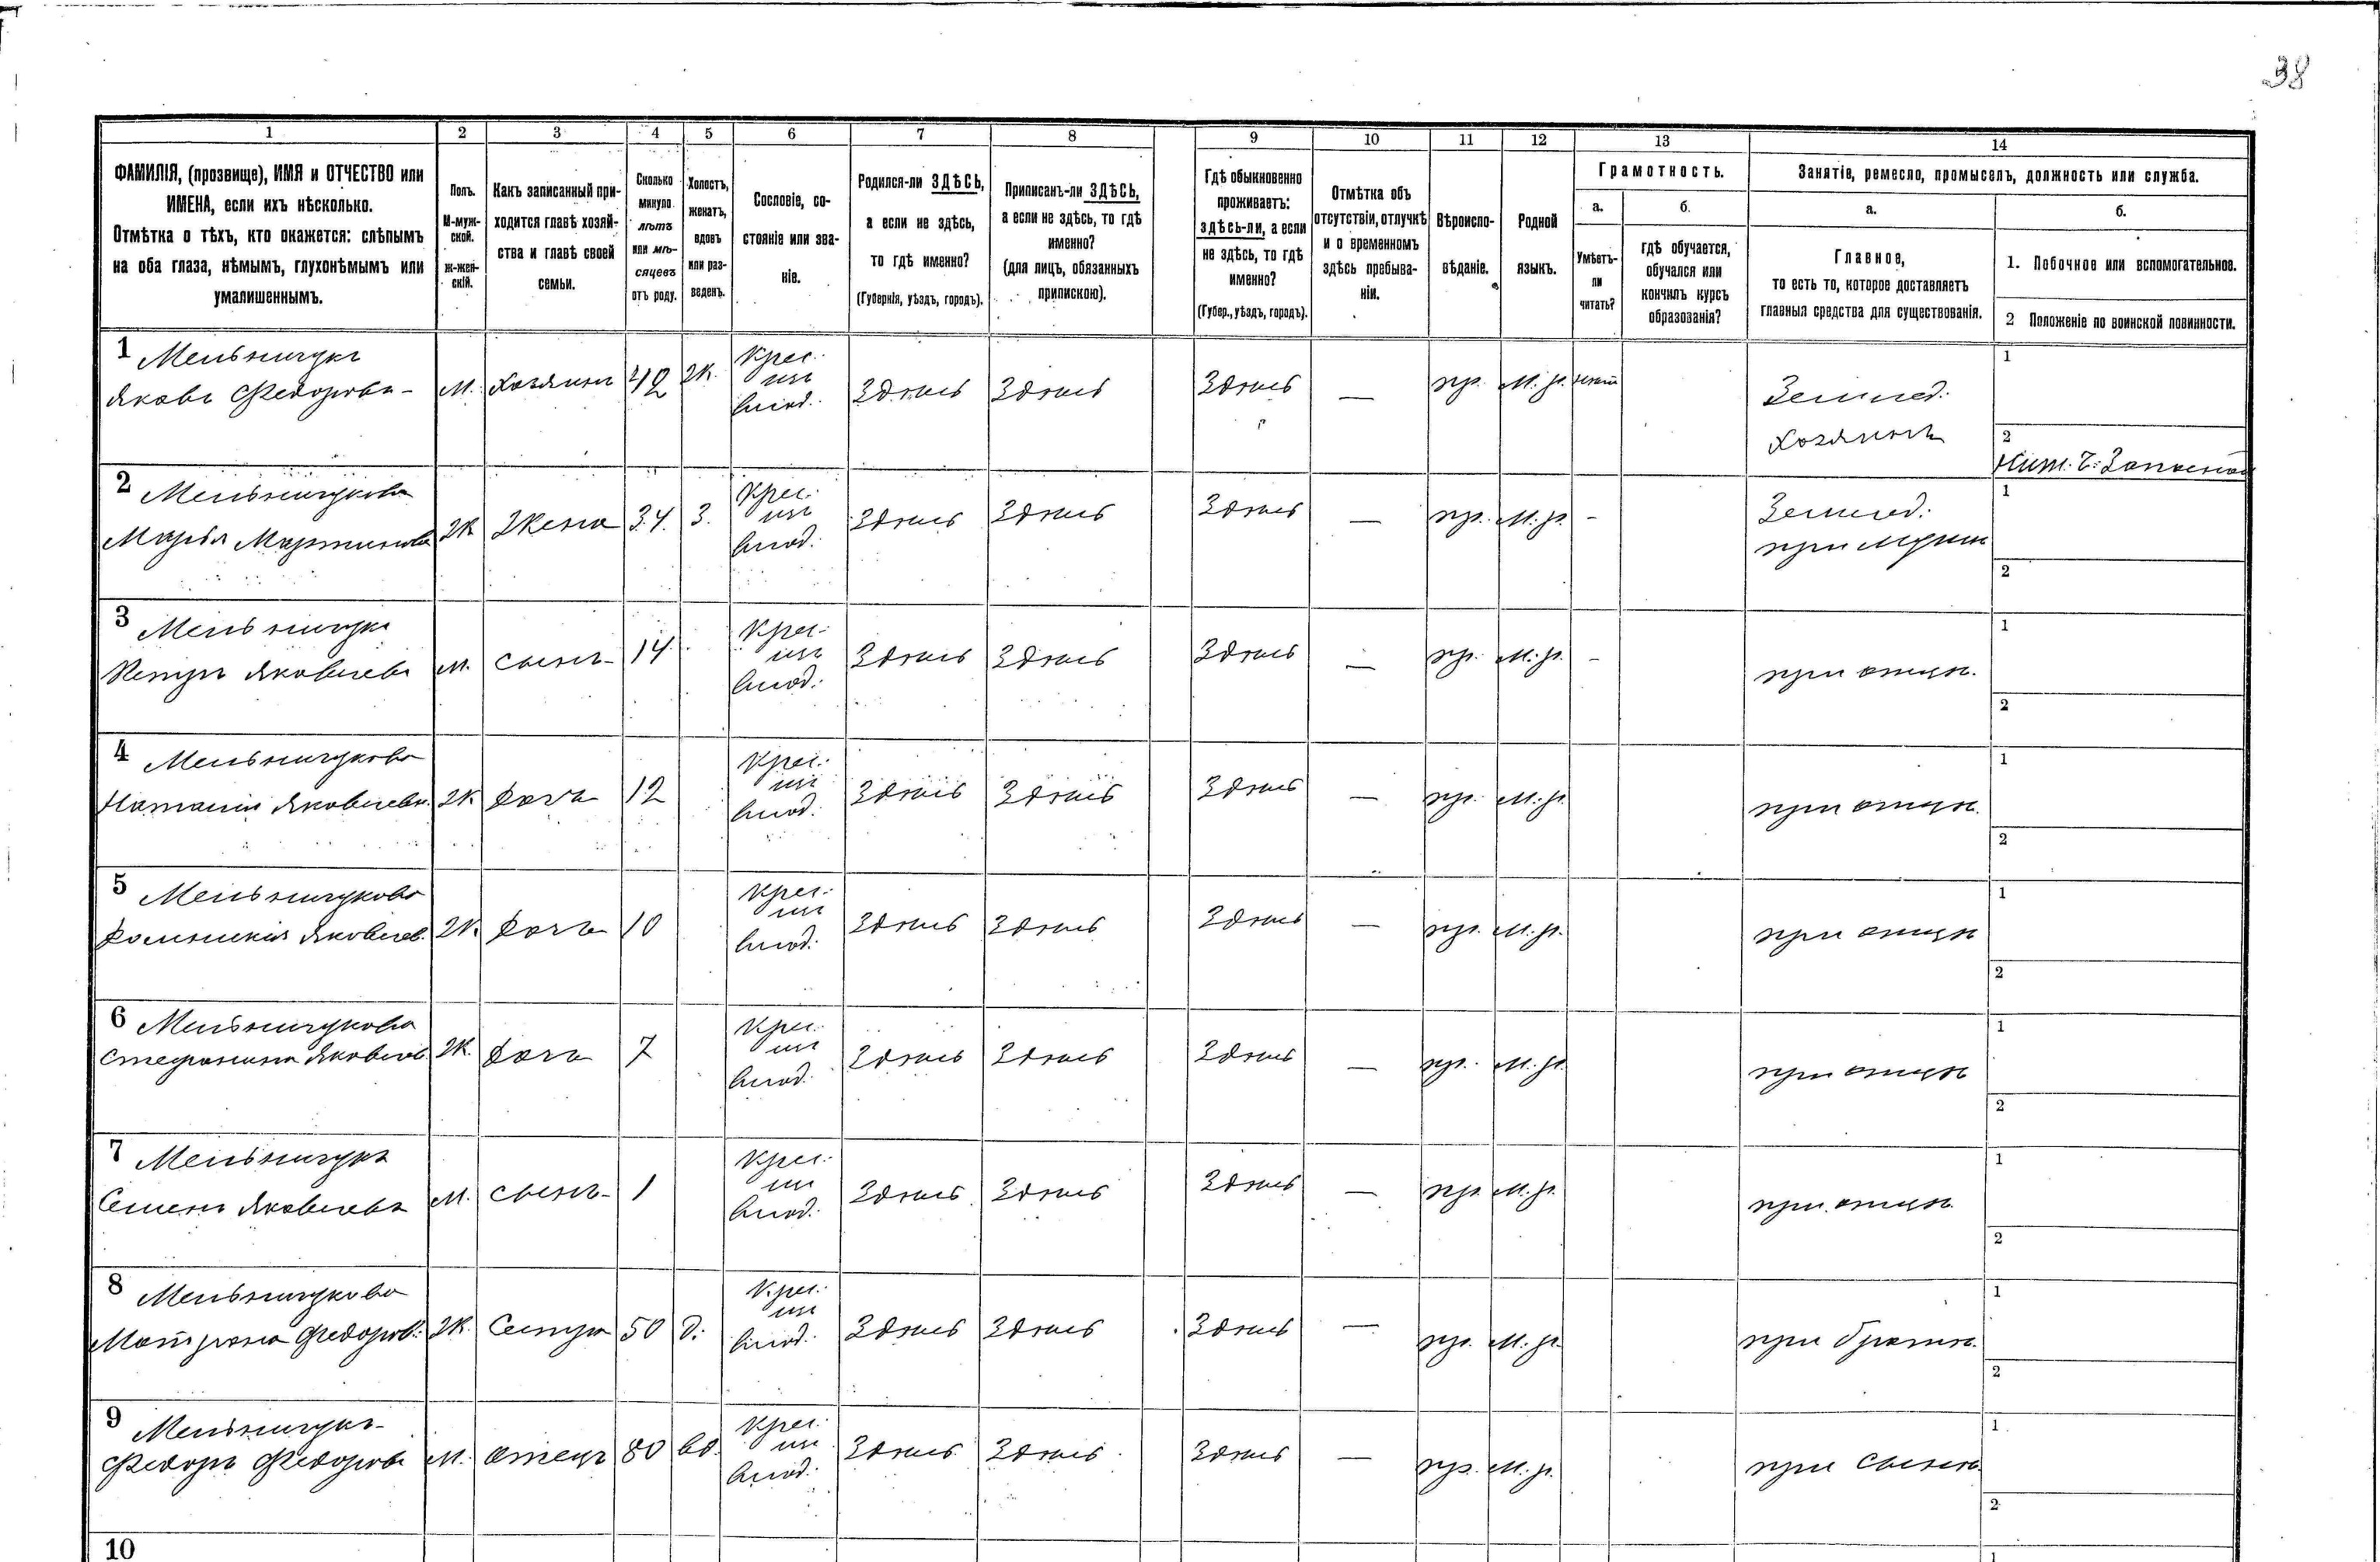 38
1 2 3 4 5 6 7 8 9 10 11 12 13 14
ФАМИЛІЯ, (прозвище), ИМЯ и ОТЧЕСТВО или
ИМЕНА, если ихъ нѣсколько.
Отмѣтка о тѣхъ, кто окажется: слѣпымъ
на оба глаза, нѣмымъ, глухонѣмымъ или
умалишеннымъ.
Полъ.
М-муж-
ской.
ж-жен-
скій.
Какъ записанный при-
ходится главѣ хозяй-
ства и главѣ своей
семьи.
Сколько
минуло
лѣтъ
или мѣ-
сяцевъ
отъ роду.
Холостъ,
женатъ,
вдовъ
или раз-
веденъ.
Сословіе, со-
стояніе или зва-
ніе.
Родился-ли ЗДѢСЬ,
а если не здѣсь,
то гдѣ именно?
(Губернія, уѣздъ, городъ).
Приписанъ-ли ЗДѢСЬ,
а если не здѣсь, то гдѣ
именно?
(для лицъ, обязанныхъ
припискою).
Гдѣ обыкновенно
проживаетъ:
здѣсь-ли, а если
не здѣсь, то гдѣ
именно?
(Губер., уѣздъ, городъ).
Отмѣтка объ
отсутствіи, отлучкѣ
и о временномъ
здѣсь пребыва-
ніи.
Вѣроиспо-
вѣданіе.
Родной
языкъ.
Грамотность.
а.
Умѣетъ-
ли
читать?
б.
гдѣ обучается,
обучался или
кончилъ курсъ
образованія?
Занятіе, ремесло, промыселъ, должность или служба.
а.
Главное,
то есть то, которое доставляетъ
главныя средства для существованія.
б.
1. Побочное или вспомогательное.
2 Положеніе по воинской повинности.
1 Мельничукъ
Яковъ Федоровъ - М. Хозяинъ 42 Ж. Крес. изъ влад. Здѣсь Здѣсь Здѣсь — пр. М. р. Землед. Хозяинъ
1
2
Ниж. Ч. Запасной
2 Мельничукова
Марья Мартинова Ж Жена 34. З. Крес. изъ влад. Здѣсь Здѣсь Здѣсь — пр. М. р. - Землед. при мужѣ
1
2
3 Мельничукъ
Петръ Яковлевъ М. сынъ 14 Крес. изъ влад. Здѣсь Здѣсь Здѣсь — пр. М. р. - при отцѣ.
1
2
4 Мельничукова
Наталія Яковлевн. Ж. дочь 12 Крес. изъ влад. Здѣсь Здѣсь Здѣсь — пр. М. р. при отцѣ.
1
2
5 Мельничукова
Домникія Яковлев. Ж. дочь 10 Крес. изъ влад. Здѣсь Здѣсь Здѣсь — пр. М. р. при отцѣ
1
2
6 Мельничукова
Стефанина Яковлев. Ж. дочь 7 Крес. изъ влад. Здѣсь Здѣсь Здѣсь — пр. М. р. при отцѣ
1
2
7 Мельничукъ
Семенъ Яковлевъ М. сынъ 1 Крес. изъ влад. Здѣсь Здѣсь Здѣсь — пр. М. р. при отцѣ.
1
2
8 Мельничукова
Матрона Федоров. Ж. Сестра 50 д. Крес. изъ влад. Здѣсь Здѣсь Здѣсь — пр. М. р. при братѣ.
1
2
9 Мельничукъ
Федоръ Федоровъ М. отецъ 80 вд. Крес. изъ влад. Здѣсь Здѣсь Здѣсь — пр. М. р. при сынѣ.
1
2
10
1